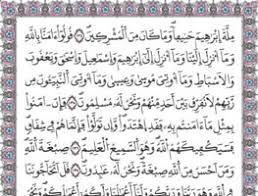 مِلَّةَ إِبْرَٰهِۦمَ حَنِيفًا وَمَا كَانَ مِنَ ٱلْمُشْرِكِينَ قُولُوٓا۟ ءَامَنَّا بِٱللَّهِ
وَمَآ أُنزِلَ إِلَيْنَا وَمَآ أُنزِلَ إِلَىٰٓ إِبْرَٰهِۦمَ وَإِسْمَٰعِيلَ وَإِسْحَٰقَ وَيَعْقُوبَ
وَٱلْأَسْبَاطِ وَمَآ أُوتِىَ مُوسَىٰ وَعِيسَىٰ وَمَآ أُوتِىَ ٱلنَّبِيُّونَ مِن
رَّبِّهِمْ لَا نُفَرِّقُ بَيْنَ أَحَدٍ مِّنْهُمْ وَنَحْنُ لَهُۥ مُسْلِمُونَ فَإِنْ ءَامَنُوا۟
بِمِثْلِ مَآ ءَامَنتُم بِهِۦ فَقَدِ ٱهْتَدَوا۟ وَّإِن تَوَلَّوْا۟ فَإِنَّمَا هُمْ فِى شِقَاقٍ
فَسَيَكْفِيكَهُمُ ٱللَّهُ وَهُوَ ٱلسَّمِيعُ ٱلْعَلِيمُ صِبْغَةَ ٱللَّهِ
وَمَنْ أَحْسَنُ مِنَ ٱللَّهِ صِبْغَةً وَنَحْنُ لَهُۥ عَٰبِدُونَ قُلْ أَتُحَآجُّونَنَا